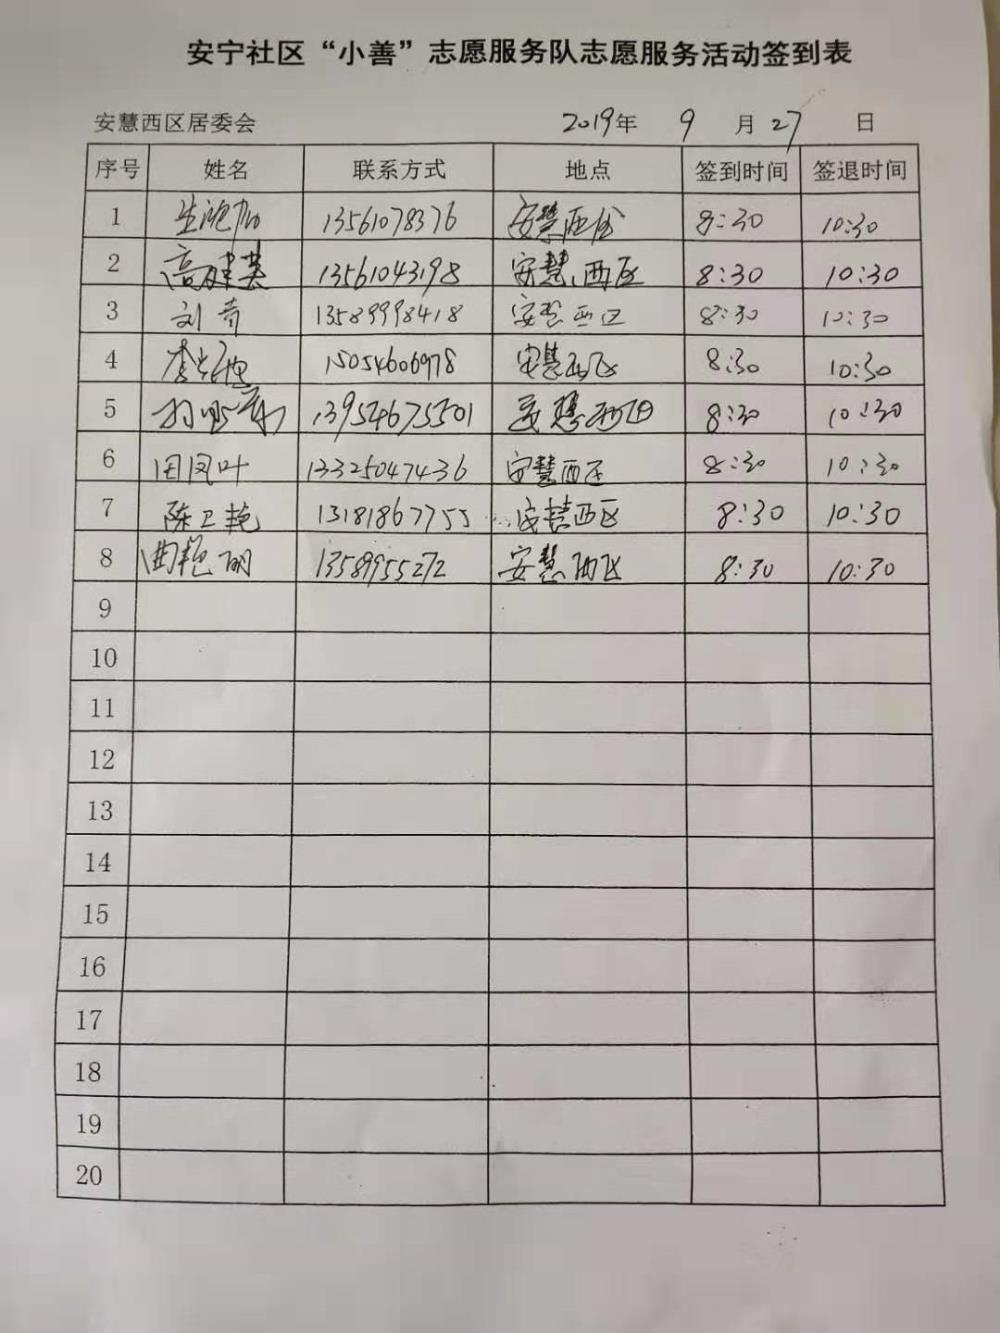 安宁社区“小善”志愿服务队志愿服务活动签到表
安慧西区居委会 2019年 9 月 27 日
序号 姓名 联系方式 地点 签到时间 签退时间
1 13561078376 安慧西 8:30 10:30
2 高建英 13561043198 安慧西区 8:30 10:30
3 刘青 13589998418 安慧西区 8:30 10:30
4 李 15054606978 安慧西区 8:30 10:30
5 13954675501 安慧西区 8:30 10:30
6 田凤叶 13325047436 安慧西区 8:30 10:30
7 陈卫艳 13181867755 安慧西区 8:30 10:30
8 曲艳丽 13589955272 安慧西区 8:30 10:30
9
10
11
12
13
14
15
16
17
18
19
20